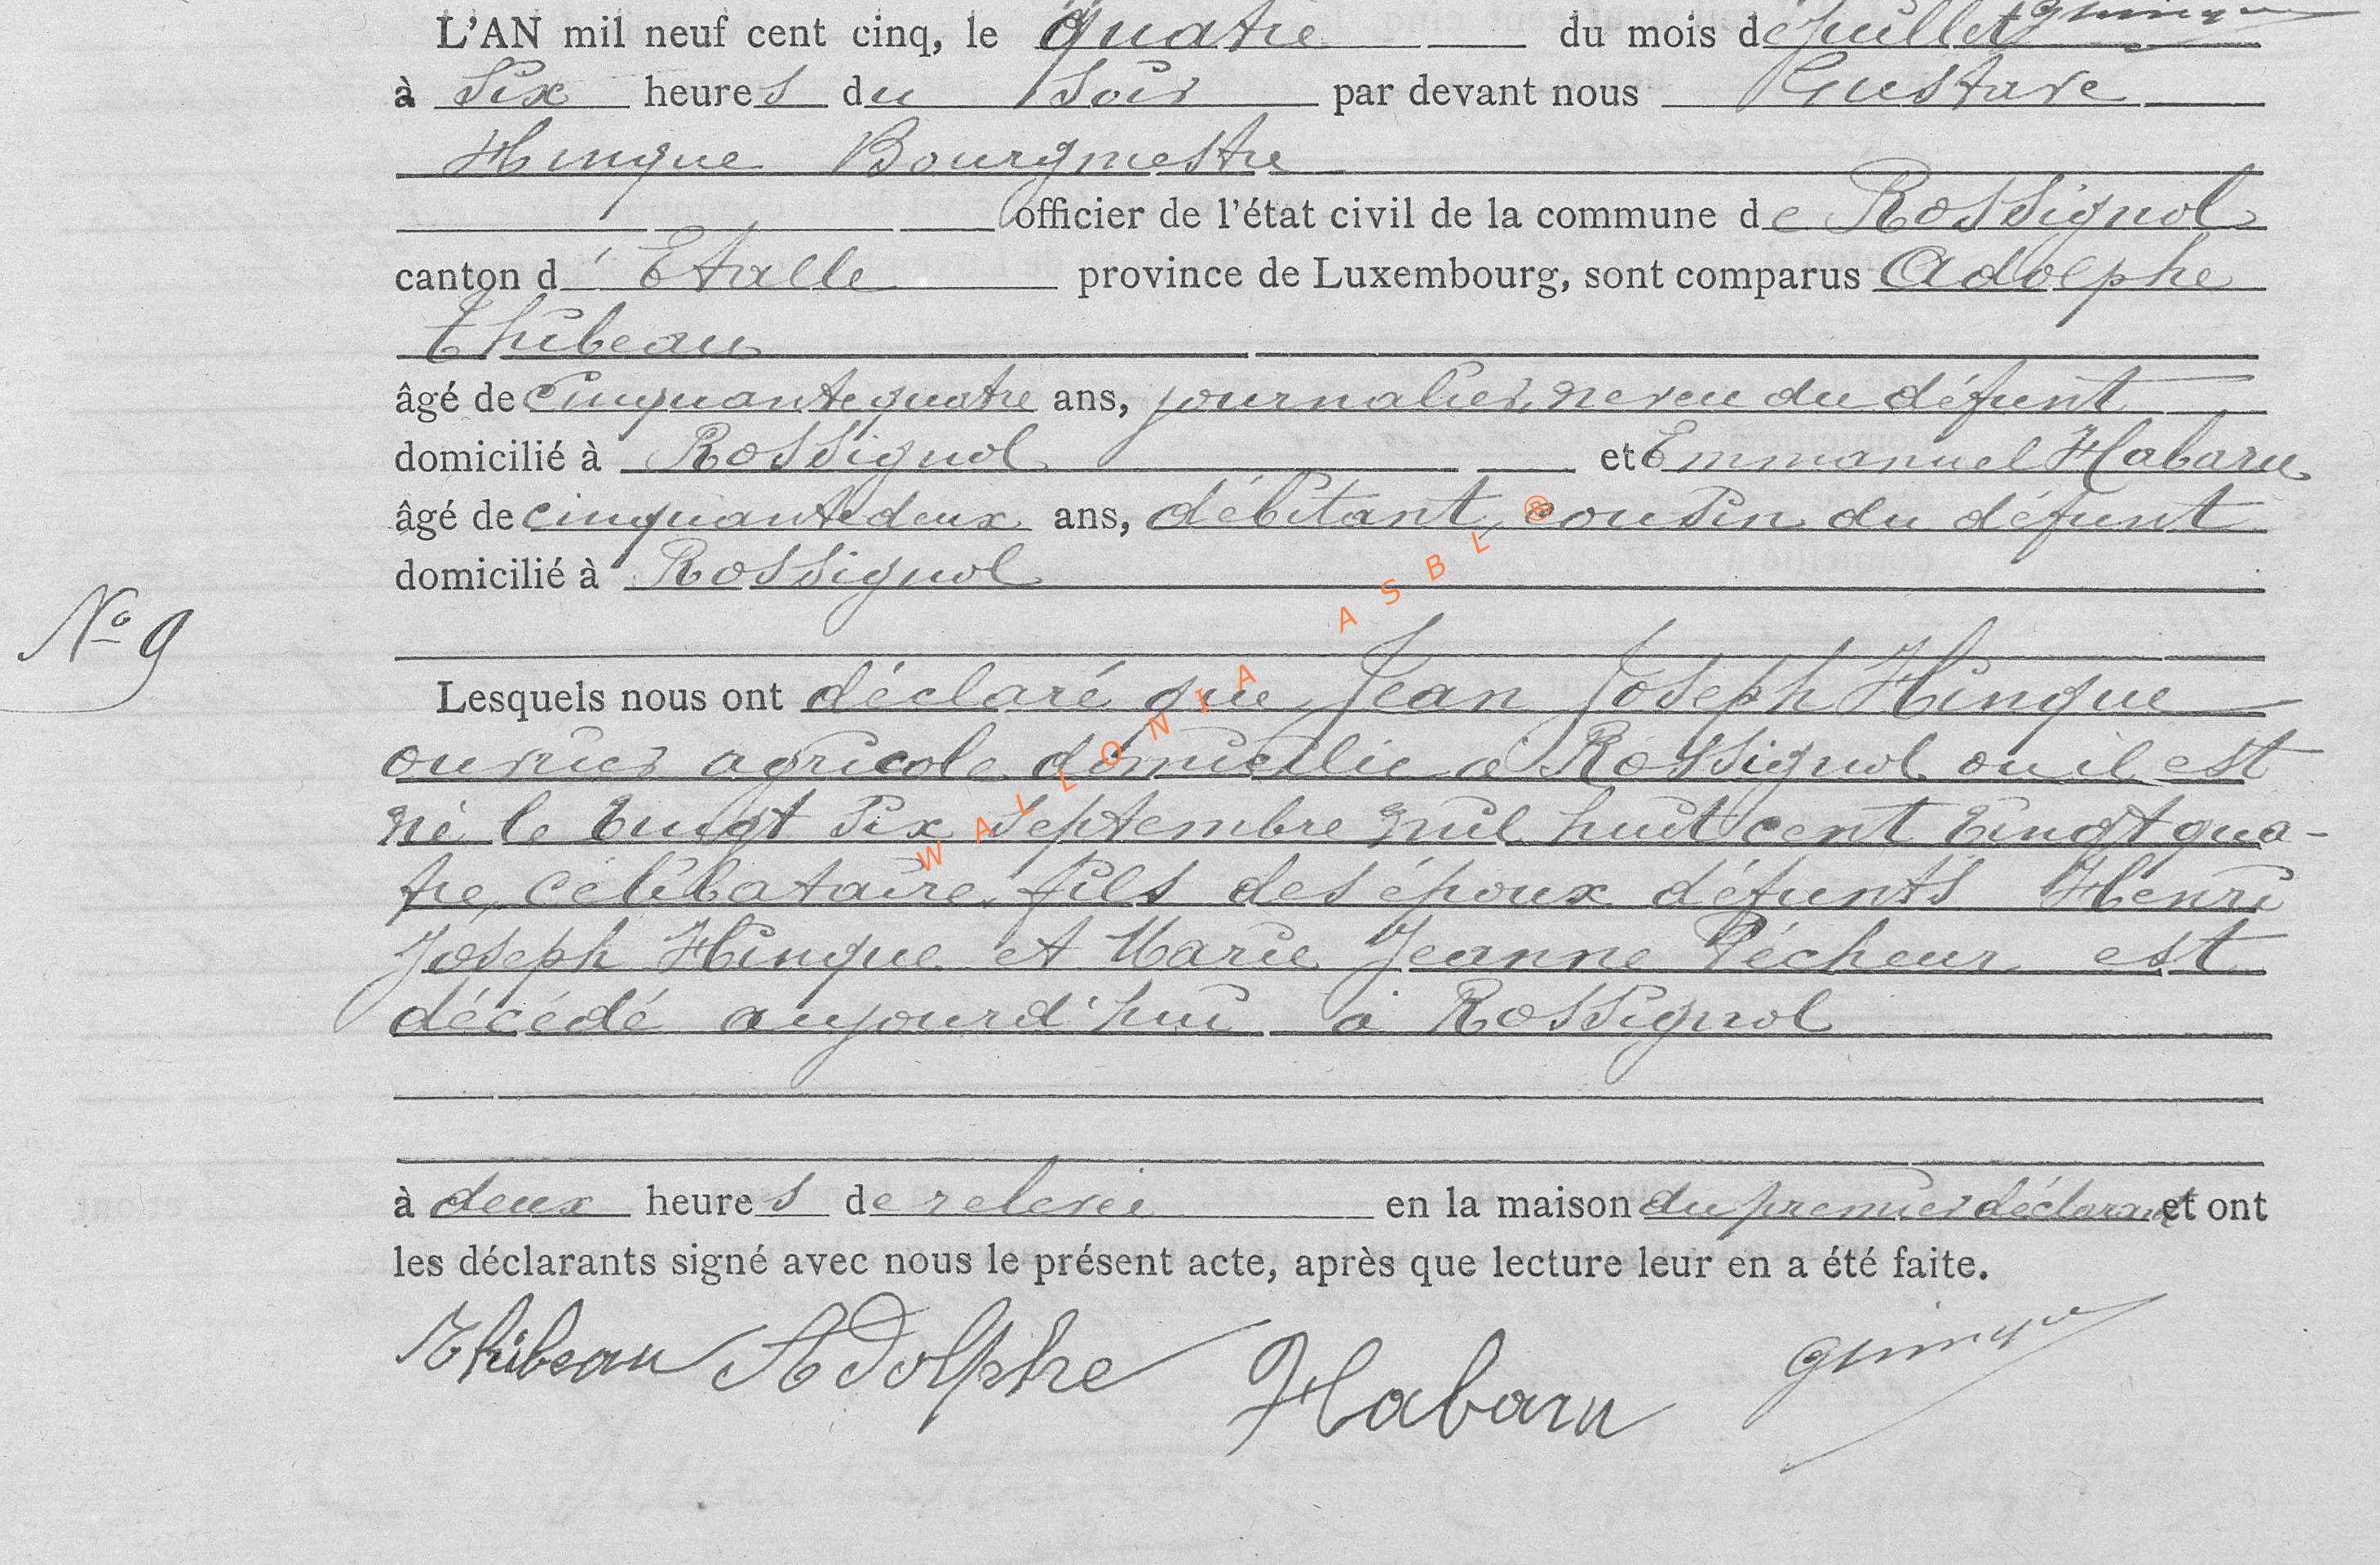 L'AN mil neuf cent cinq, le quatre du mois de juillet
à six heures du soir par devant nous Gustave
Hinque Bourgmestre
officier de l'état civil de la commune de Rossignol
canton d'Etalle province de Luxembourg, sont comparus Adolphe
Thibeau
âgé de cinquante quatre ans, journalier, neveu du défunt
domicilié à Rossignol et Emmanuel Habaru
âgé de cinquante deux ans, débitant, cousin du défunt
domicilié à Rossignol
N° 9
Lesquels nous ont déclaré que Jean Joseph Hinque
ouvrier agricole domicilié à Rossignol ou il est
né le vingt six septembre mil huit cent vingt qua-
tre, célibataire, fils des époux défunts Henri
Joseph Hinque et Marie Jeanne Pécheur est
décédé aujourd'hui à Rossignol
à deux heures de relevée en la maison du premier déclarant et ont
les déclarants signé avec nous le présent acte, après que lecture leur en a été faite.
Thibeau Adolphe Habaru
WALLONIA ASBL ®